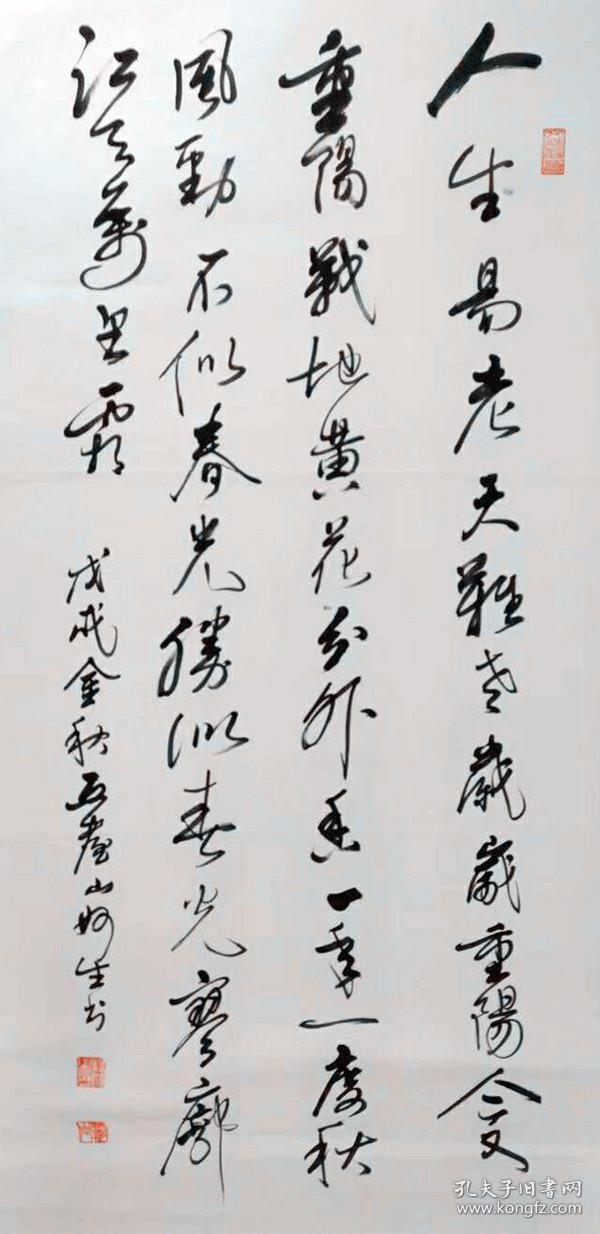 人生易老天難老歲歲重陽今又
重陽戰地黄花分外香一年一度秋
風勁不似春光勝似春光寥廓
江天萬里霜
戊戌金秋五臺山妙生书
孔夫子旧書网
www.kongfz.com